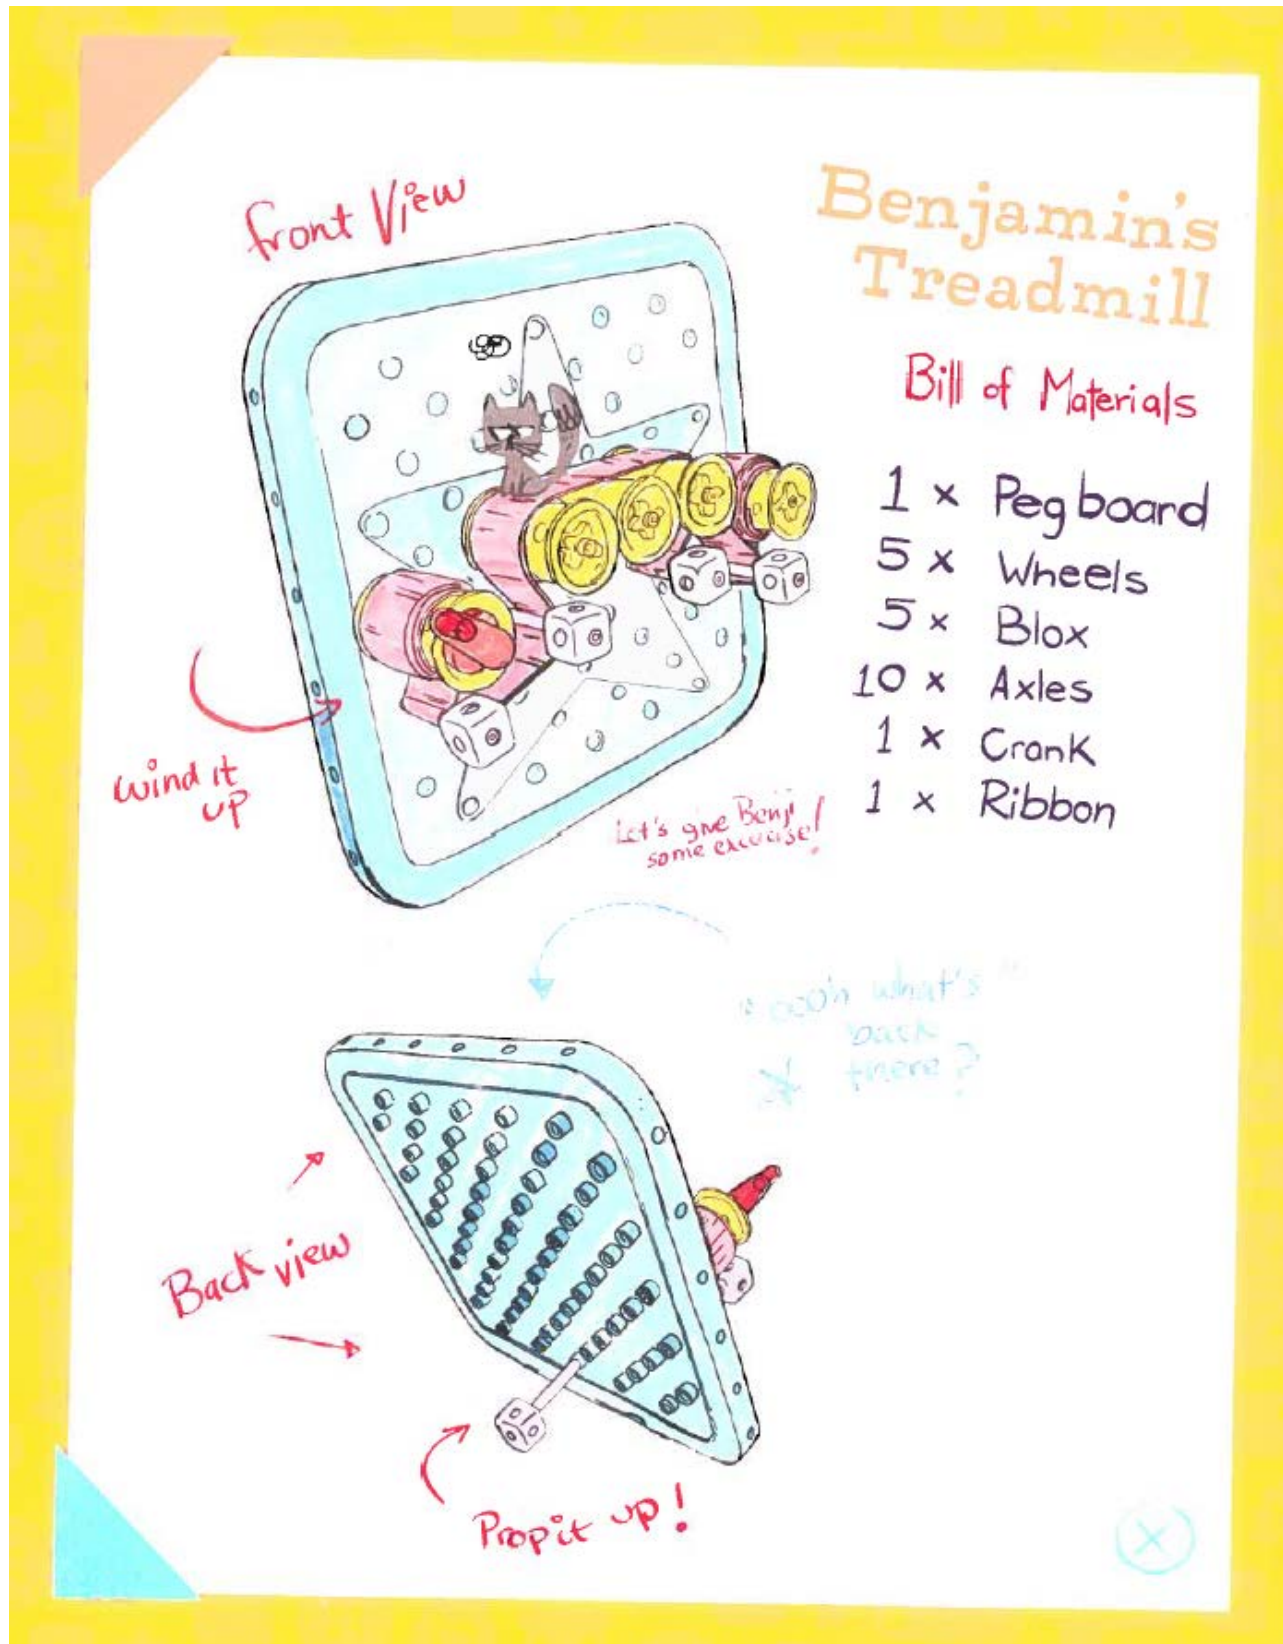 front View
Benjamin's
Treadmill
Bill of Materials
1 x Peg board
5 x Wheels
5 x Blox
10 x Axles
1 x Crank
1 x Ribbon
wind it
up
Let's give Benji
some exercise!
"oooh what's"
back
there?
Back view
Prop it up!
X